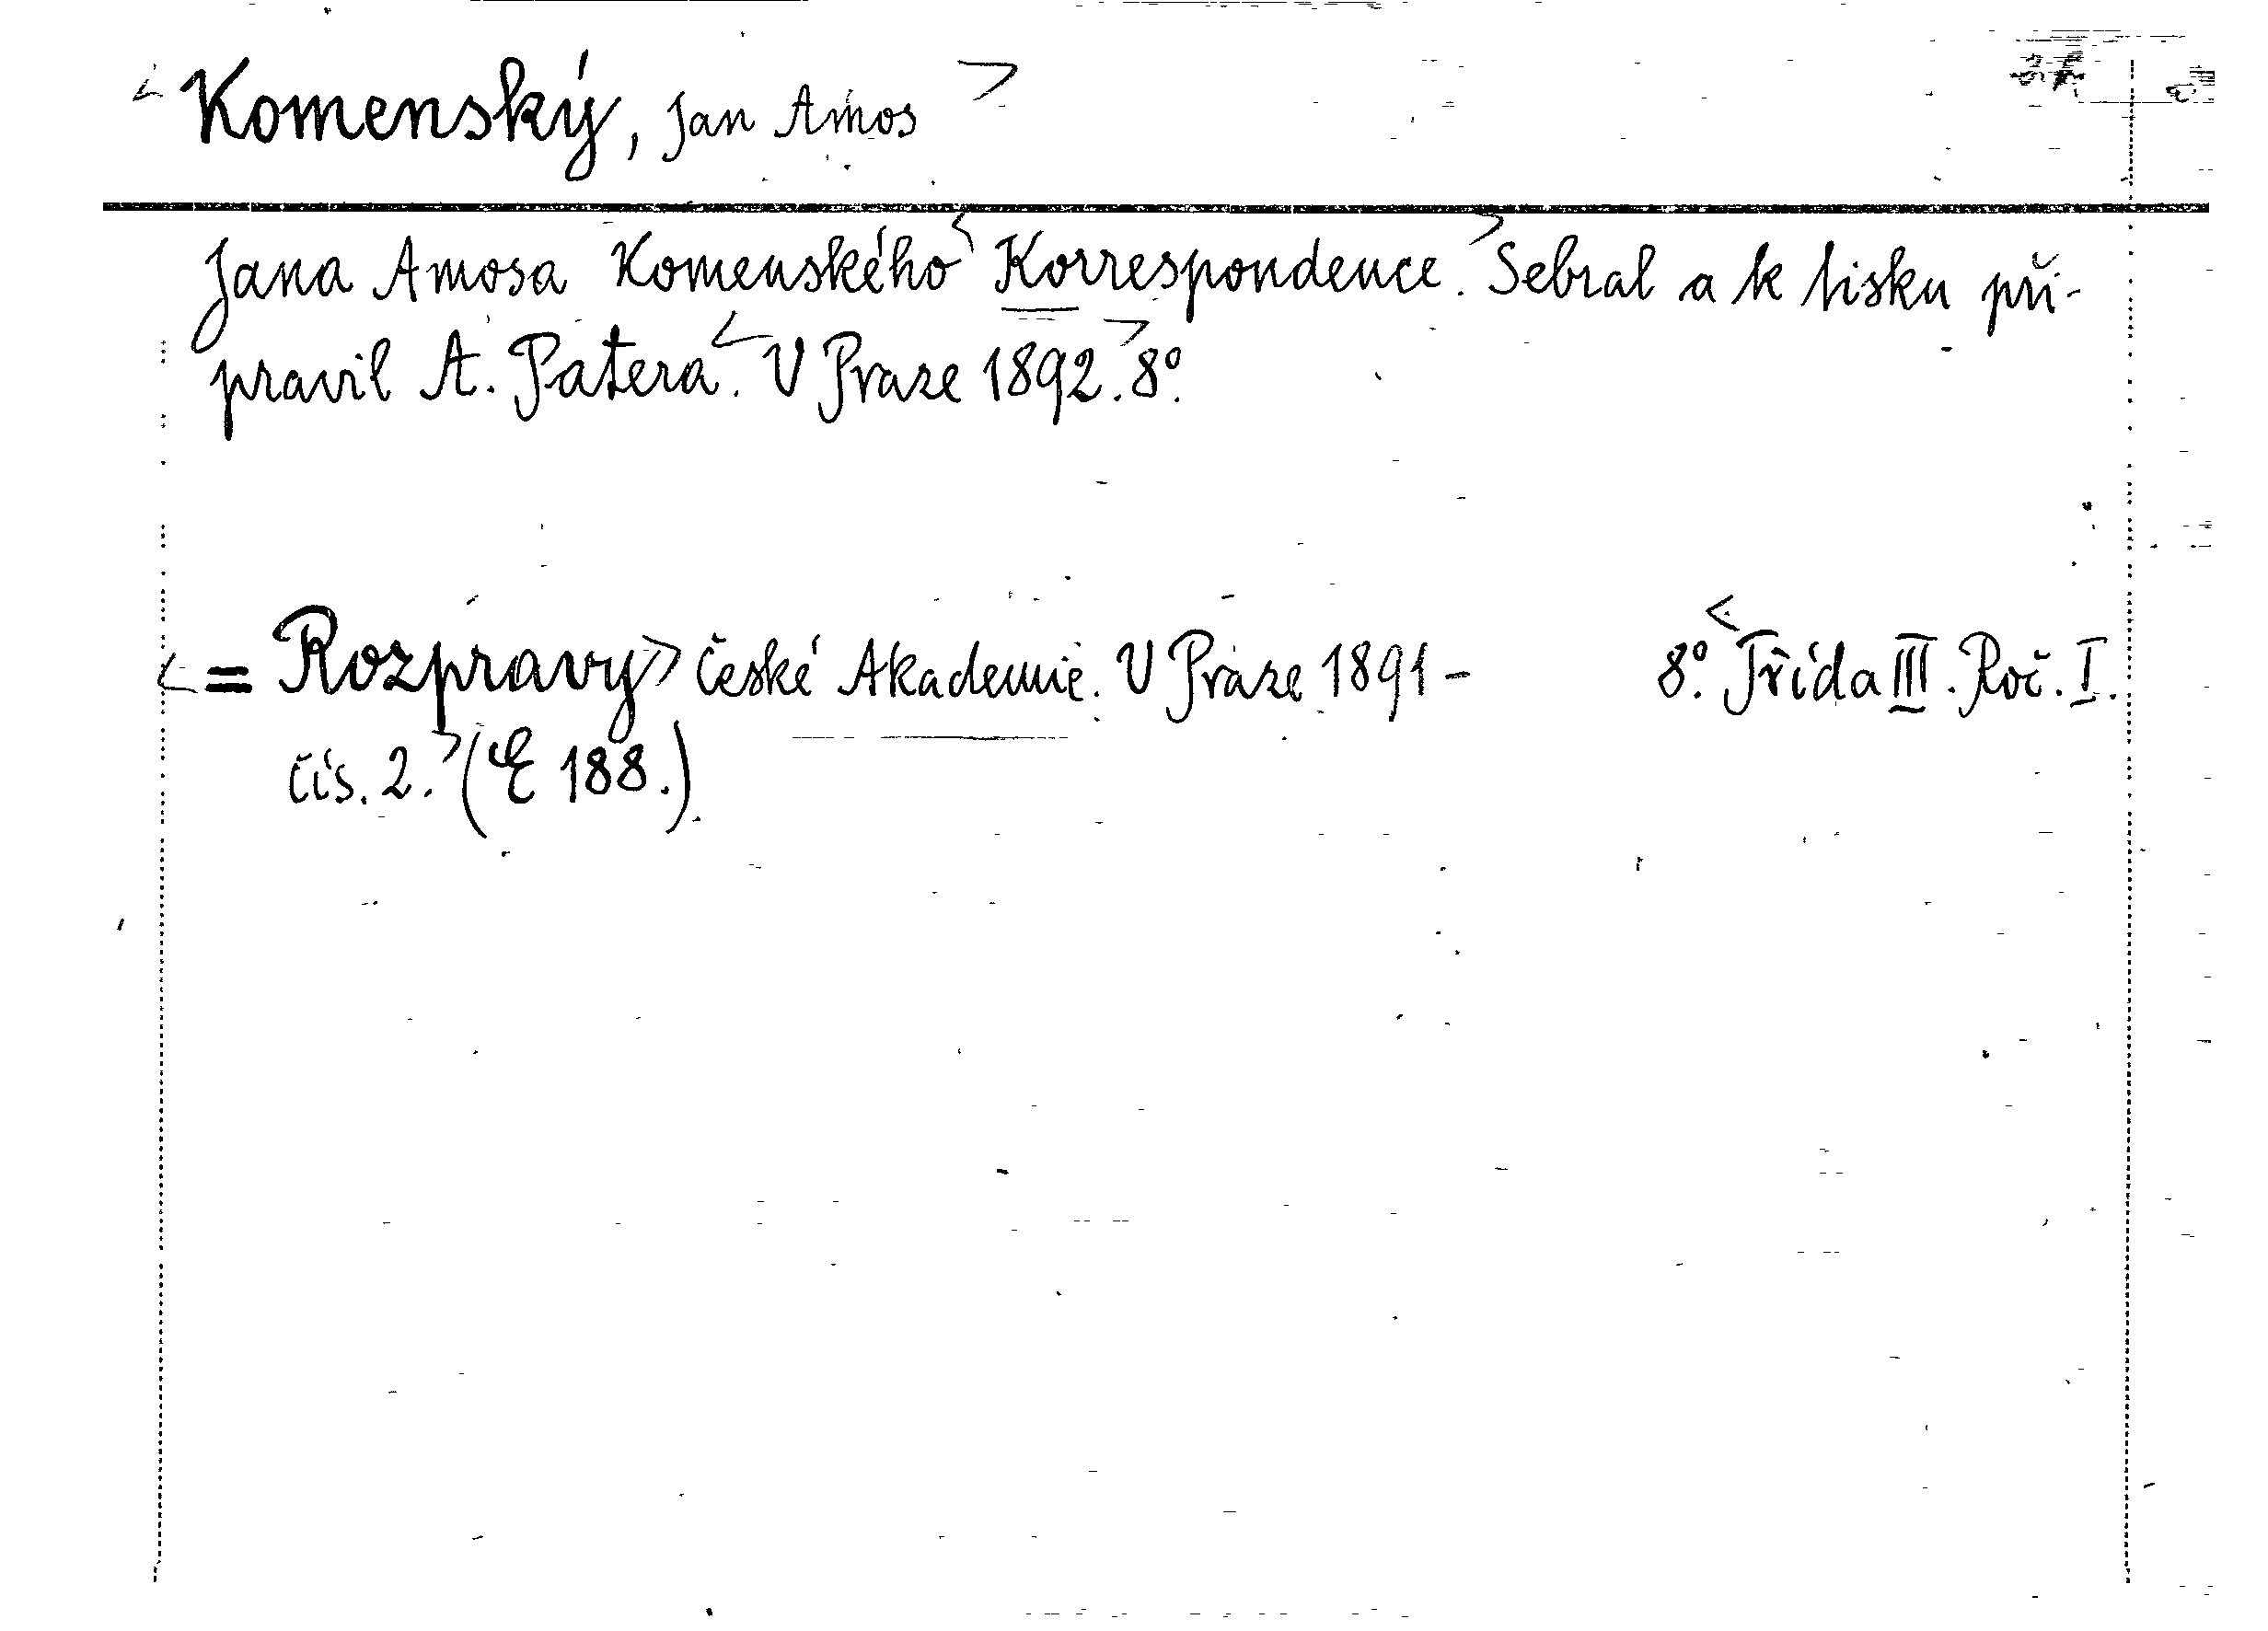 < Komenský, Jan Amos >
Jana Amosa Komenského < Korrespondence. > Sebral a k tisku při-
pravil A. Patera. < V Praze 1892. > 8°.
< = Rozpravy > České Akademie. V Praze 1891 - 8°. < Třída III. Roč. I.
čís. 2. > (E 188.)